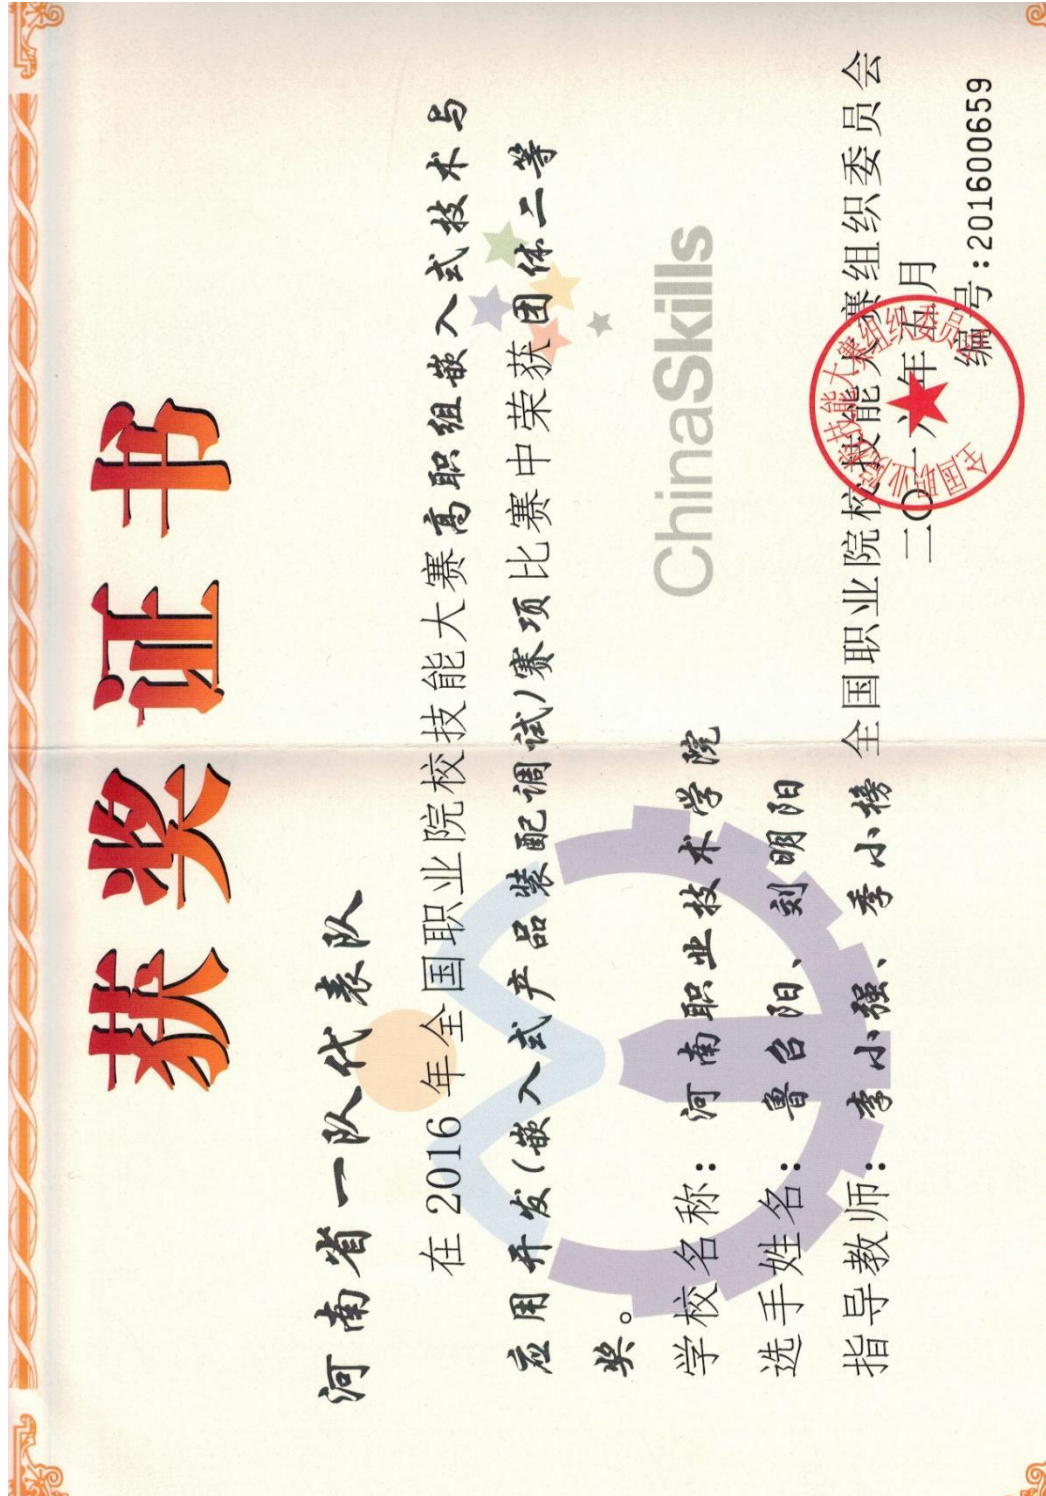 获奖证书
河南省一队代表队
在 2016 年全国职业院校技能大赛高职组嵌入式技术与
应用开发(嵌入式产品装配调试)赛项比赛中荣获团体二等
奖。
ChinaSkills
学校名称：河南职业技术学院
选手姓名：鲁名阳、刘明阳
指导教师：李小强、季小榜
全国职业院校技能大赛组织委员会
二〇一六年五月
编号:201600659
全国职业院校技能大赛组织委员会